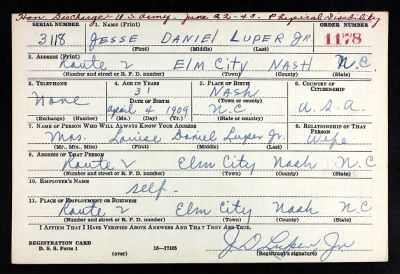 Hon Discharge U.S. Army - June 22-43. Physical Disability
SERIAL NUMBER 1. NAME (Print) ORDER NUMBER
3118 JESSE DANIEL LUPER JR 1178
(First) (Middle) (Last)
2. ADDRESS (Print)
Route 2 ELM CITY NASH N.C
(Number and street or R. F. D. number) (Town) (County) (State)
3. TELEPHONE 4. AGE IN YEARS 5. PLACE OF BIRTH 6. COUNTRY OF CITIZENSHIP
None 31 NASH U.S.A.
DATE OF BIRTH (Town or county)
April 4 1909 N.C
(Exchange) (Number) (Mo.) (Day) (Yr.) (State or country)
7. NAME OF PERSON WHO WILL ALWAYS KNOW YOUR ADDRESS 8. RELATIONSHIP OF THAT PERSON
Mrs. Louise Daniel Luper Jr. Wife
(Mr., Mrs., Miss) (First) (Middle) (Last)
9. ADDRESS OF THAT PERSON
Route 2 Elm City Nash N.C
(Number and street or R. F. D. number) (Town) (County) (State)
10. EMPLOYER'S NAME
self-
11. PLACE OF EMPLOYMENT OR BUSINESS
Route 2 Elm City Nash N.C
(Number and street or R. F. D. number) (Town) (County) (State)
I AFFIRM THAT I HAVE VERIFIED ABOVE ANSWERS AND THAT THEY ARE TRUE.
REGISTRATION CARD
D. S. S. Form 1 16-17105 J. D. Luper Jr
(over) (Registrant's signature)